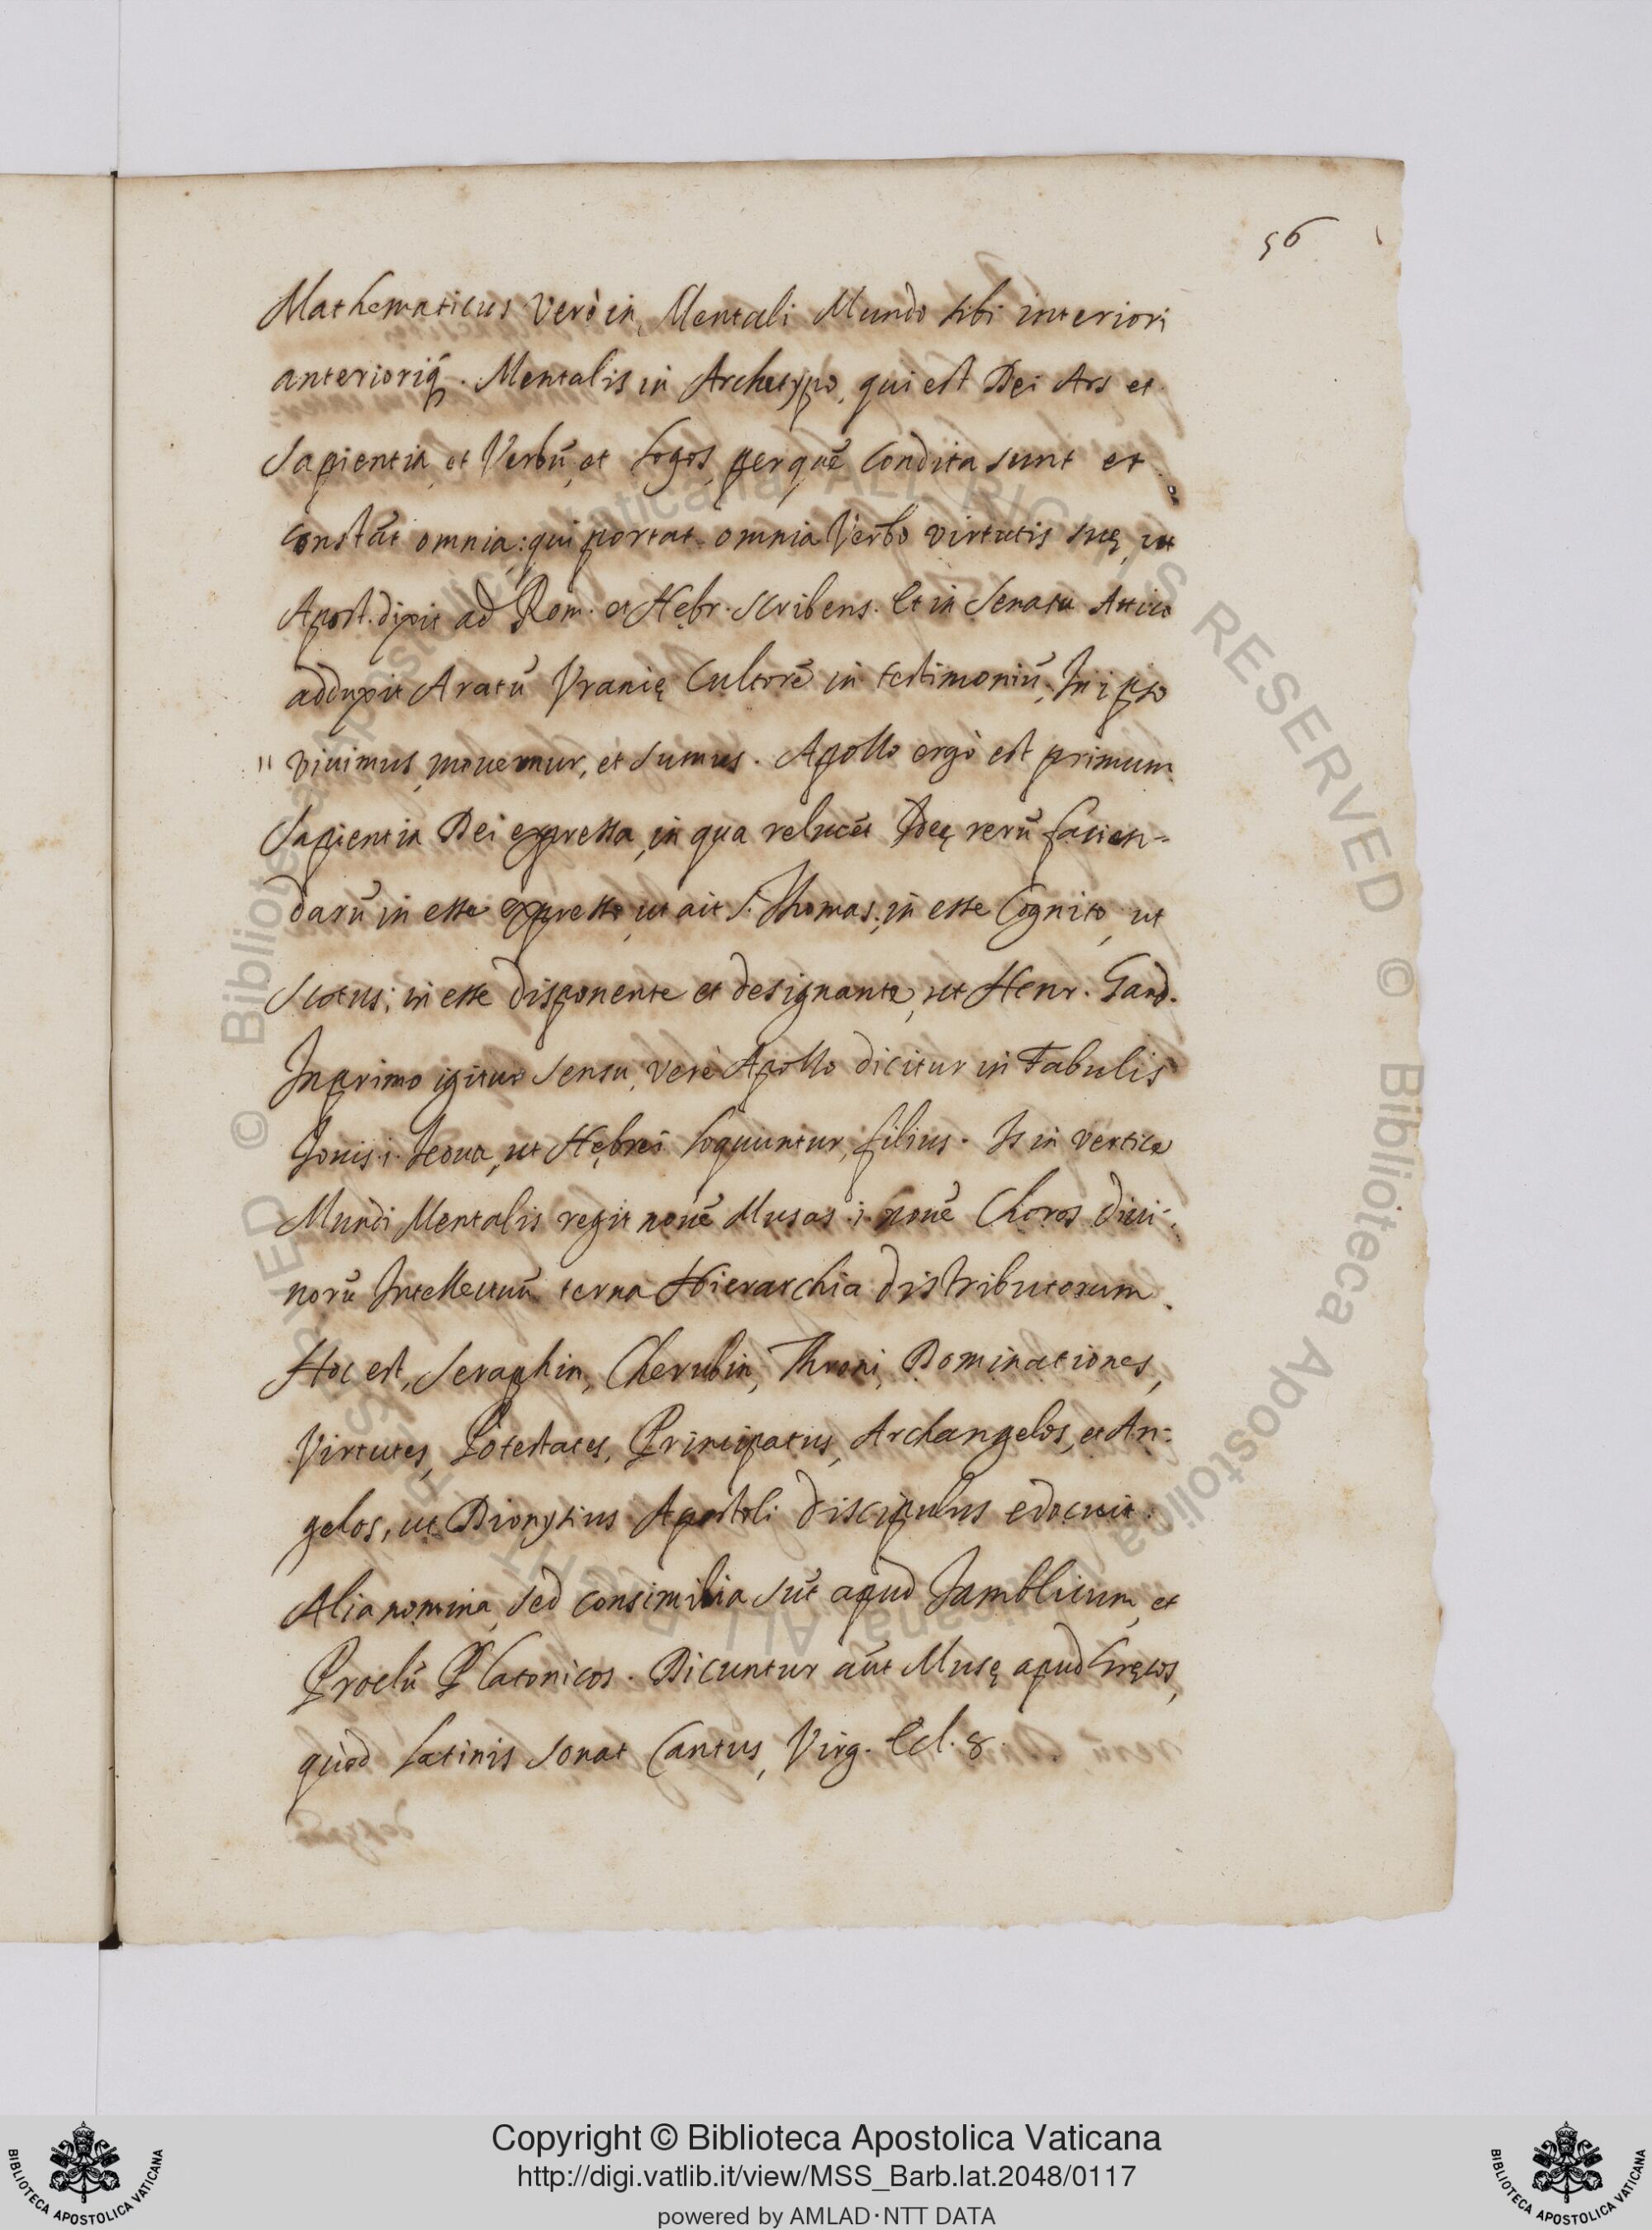 56
Mathematicus verò in, Mentali Mundo sibi interiori
anterioriq́. Mentalis in Archetypo, qui est Dei Ars et
Sapientia, et Verbū, et Logos, per quē condita sunt et
constāt omnia: qui portat omnia Verbo virtutis suę, ut
Apost. dixit ad Rom. et Hębr. scribens. Et in Senatu Attico
adduxit Aratū Vranię Cultorē in testimoniū; In ipso
" viuimus, mouemur, et sumus. Apollo ergò est primum
Sapientia Dei expressa, in qua relucēt Ideę rerū facien-
darū in esse expresso, ut ait S. Thomas; in esse Cognito, ut
Scotus; in esse disponente et designante, ut Henr. Gand.
In primo igitur sensu, verè Apollo dicitur in Fabulis
Iouis .i. Ieoua, ut Hębrei loquuntur, filius. Is in vertice
Mundi Mentalis regit nouē Musas .i. nouē Choros diui-
norū Intellectuū terna Hierarchia distributorum.
Hoc est, Seraphin, Cherubin, Throni, Dominationes,
Virtutes, Potestates, Principatus, Archangelos, et An-
gelos, ut Dionysius Apostoli discipulus edocuit.
Alia nomina, sed consimilia sūt apud Iamblicum, et
Proclū Platonicos. Dicuntur aūt Musę apud Gręcos,
quòd Latinis sonat Cantus, Virg. Ecl. 8.
© Biblioteca Apostolica Vaticana ALL RIGHTS RESERVED © Biblioteca Apostolica Vaticana ALL RIGHTS RESERVED
Copyright © Biblioteca Apostolica Vaticana
http://digi.vatlib.it/view/MSS_Barb.lat.2048/0117
powered by AMLAD·NTT DATA
BIBLIOTECA APOSTOLICA VATICANA
BIBLIOTECA APOSTOLICA VATICANA